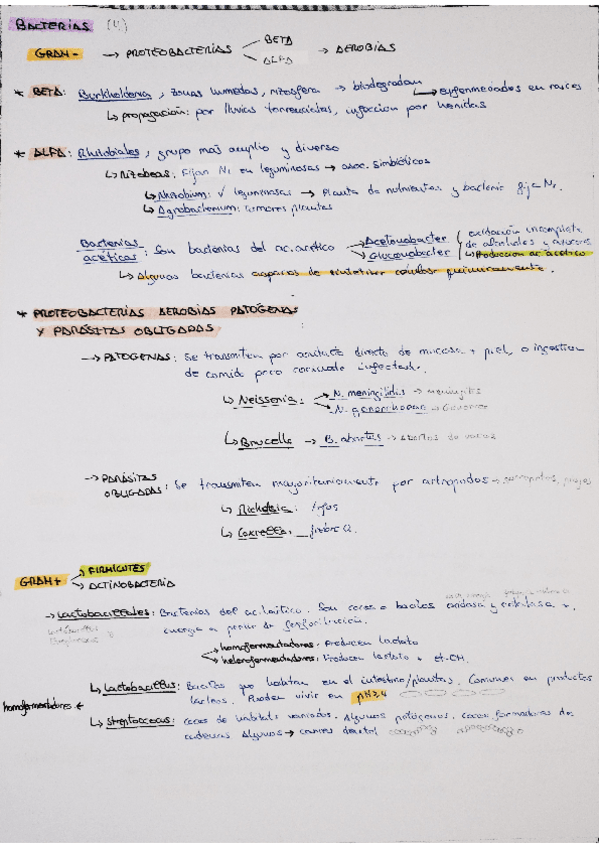 BACTERIAS (V.)
GRAM - → PROTEOBACTERIAS BETA → AEROBIAS
ALFA
* BETA: Burkholderia, zonas humedas, rizosfera → biodegradan → enfermedades en raíces
↳ propagación: por lluvias torrenciales, infección por heridas
* ALFA: Rhizobiales, grupo más amplio y diverso
↳ Rizobeas: Fijan N₂ en leguminosas → asoc. simbióticos
↳ Rhizobium: √ leguminosas → Planta da nutrientes y bacteria fija N₂.
↳ Agrobacterium: tumores plantas
Bacterias acéticas: Son bacterias del ac. acético → Acetobacter oxidación incompleta
→ Gluconobacter de alcoholes y azucares
↳ Producción ac. acético
↳ Algunas bacterias capaces de sintetizar celulosa quimicamente.
* PROTEOBACTERIAS AEROBIAS PATÓGENAS
Y PARÁSITAS OBLIGADAS
→ PATOGENAS: Se transmiten por contacto directo de mucosa + piel, o ingestion
de comida pero infectada.
↳ Neisseria: N. meningitidis → meningitis
N. gonorrhoeae → Gonorrea
↳ Brucella → B. abortus → abortos de vacas
→ PARÁSITAS
OBLIGADAS: Se transmiten mayoritariamente por artropodos →
↳ Rickettsia: Tifus
↳ Coxiella: fiebre Q.
GRAM + → FIRMICUTES
→ ACTINOBACTERIA
→ Lactobacillales: Bacterias del ac. láctico. Son cocos o bacilos oxidasa y catalasa
energia a partir de fosforilación.
homofermentadores: Producen lactato
heterofermentadores: Producen lactato + et-OH.
homofermentadores ← ↳ Lactobacillus: Bacilos que habitan en el intestino/plantas. Comunes en productos
lacteos. Pueden vivir en pH≥4
↳ Streptococcus: cocos de habitats variados. Algunos patógenos. cocos formadores de
cadenas Algunos → caries dental